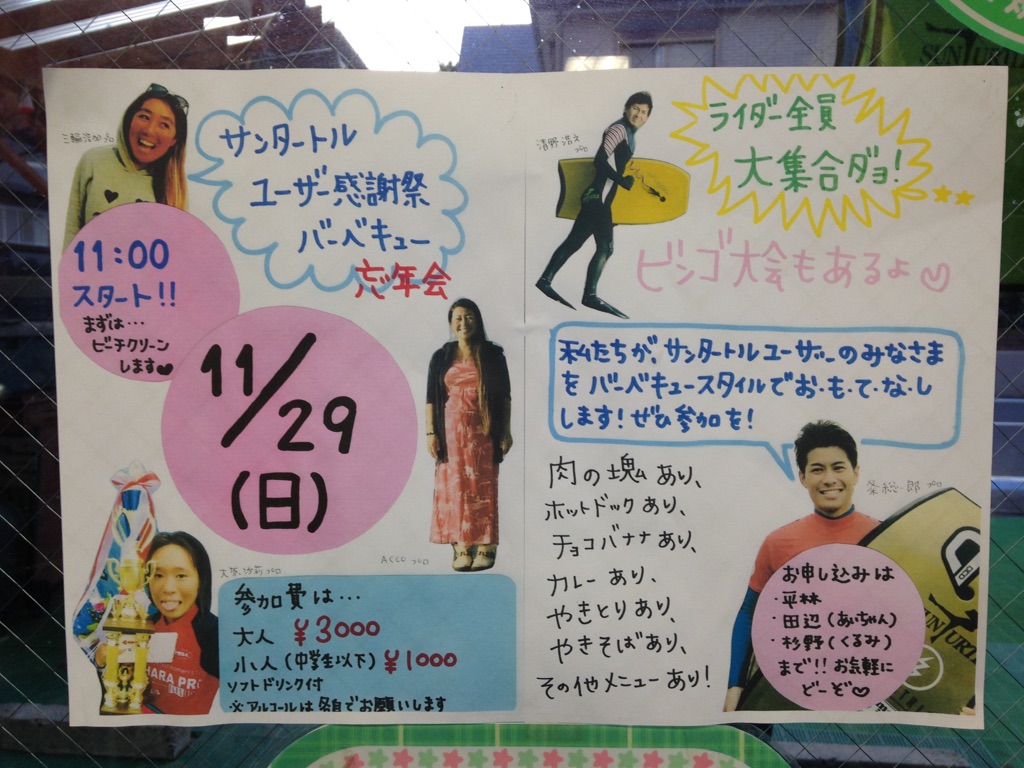 サンタートル
ユーザー感謝祭
バーベキュー
忘年会
11:00
スタート!!
まずは…
ビーチクリーン
します♥
11/29
(日)
ACCO プロ
参加費は…
大人 ¥3000
小人(中学生以下) ¥1000
ソフトドリンク付
※アルコールは各自でお願いします
清野浩之
プロ
ライダー全員
大集合ダヨ!
ビンゴ大会もあるよ♡
私たちが、サンタートルユーザーのみなさま
をバーベキュースタイルでお・も・て・な・し
します!ぜひ参加を!
肉の塊あり、
ホットドックあり、
チョコバナナあり、
カレーあり、
やきとりあり、
やきそばあり、
その他メニューあり!
プロ
お申し込みは
・平林
・田辺(あいちゃん)
・杉野(くるみ)
まで!!お気軽に
どーぞ♡